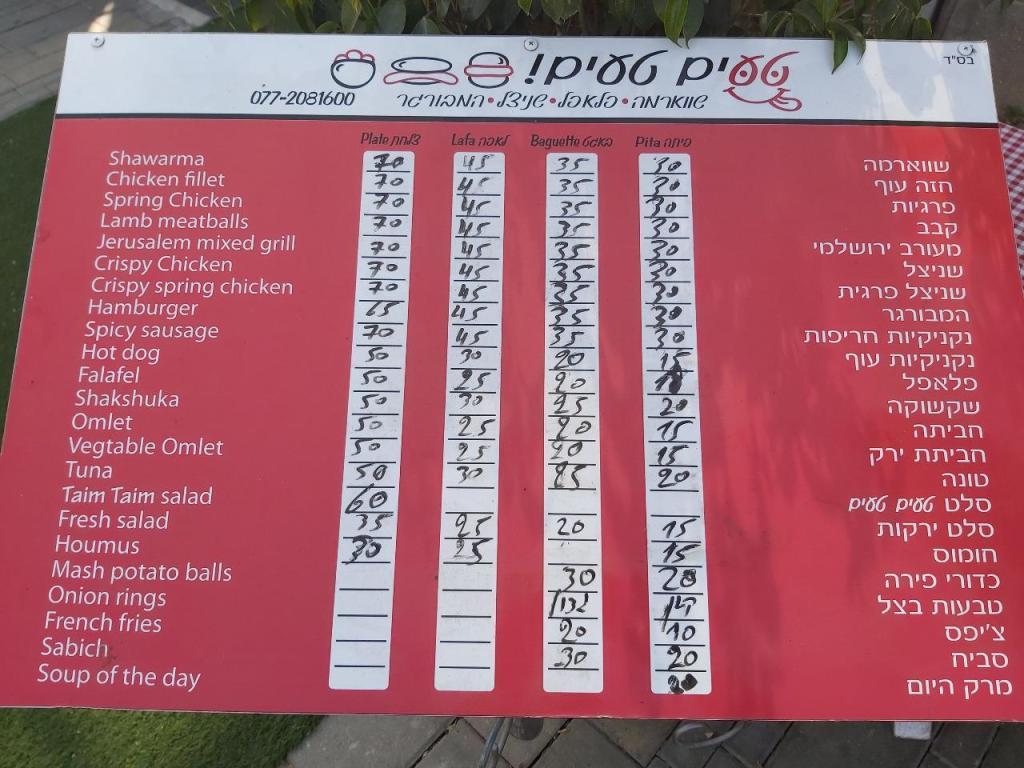 בס"ד
טעים טעים!
שווארמה • פלאפל • שניצל • המבורגר 077-2081600
Plate צלחת Lafa לאפה Baguette באגט Pita פיתה
Shawarma 70 45 35 30 שווארמה
Chicken fillet 70 45 35 30 חזה עוף
Spring Chicken 70 45 35 30 פרגיות
Lamb meatballs 70 45 35 30 קבב
Jerusalem mixed grill 70 45 35 30 מעורב ירושלמי
Crispy Chicken 70 45 35 30 שניצל
Crispy spring chicken 70 45 35 30 שניצל פרגית
Hamburger 65 45 35 30 המבורגר
Spicy sausage 70 45 35 30 נקניקיות חריפות
Hot dog 50 30 20 15 נקניקיות עוף
Falafel 50 25 20 פלאפל
Shakshuka 50 30 25 20 שקשוקה
Omlet 50 25 20 15 חביתה
Vegtable Omlet 50 25 20 15 חביתת ירק
Tuna 50 30 25 20 טונה
Taim Taim salad 60 סלט טעים טעים
Fresh salad 35 25 20 15 סלט ירקות
Houmus 30 25 15 חומוס
Mash potato balls 30 20 כדורי פירה
Onion rings טבעות בצל
French fries 20 10 צ'יפס
Sabich 30 20 סביח
Soup of the day 20 מרק היום